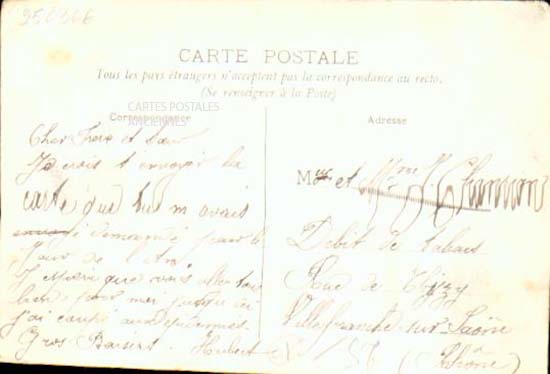 950366
CARTE POSTALE
Tous les pays étrangers n'acceptent pas la correspondance au recto.
(Se renseigner à la Poste)
CARTES POSTALES
ANCIENNES
Correspondance
Cher Frere et Sœur
Je t envoyer la
carte que tu m avais
demandé pour le
Jour de l'An
J espere que vous allez tous
bien pour moi jusqu ici
j'ai
Gros Baisers Hubert
Adresse
M et Mme
Debit de tabacs
Rue de Thizy
Villefranche-sur-Saône
(Rhône)